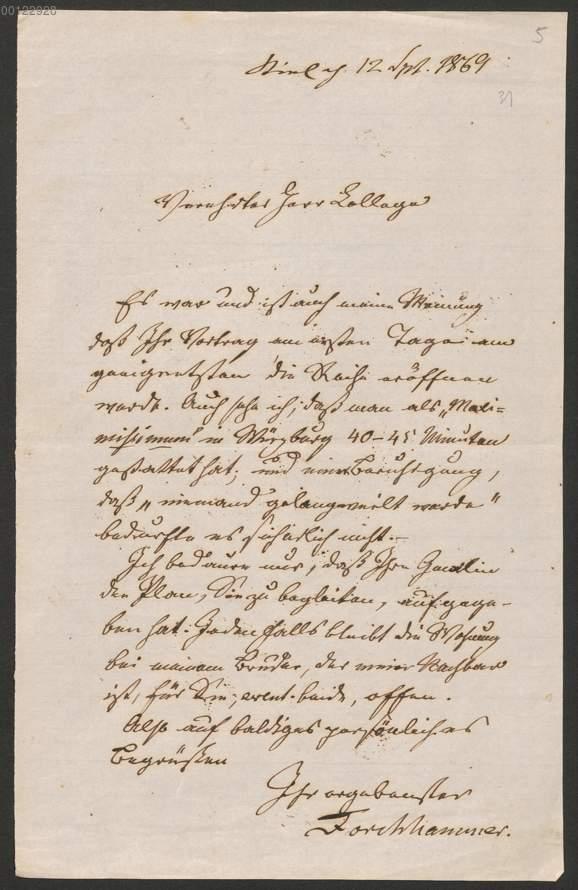 00122928
5
Kiel d. 12 Spt. 1869
31
Verehrter Herr College
Es war und ist auch meine Meinung
daß Ihr Vortrag am ersten Tage am
geeignetsten die Reihe eröffnen
werde. Auch sehe ich, daß man als „Maxi-
missimum“ in Würzburg 40–45 Minuten
gestattet hat; und einer Beruhigung,
daß „niemand gelangweilt werde“
bedurfte es sicherlich nicht.–
Ich bedaure nur, daß Ihre Gattin
den Plan, Sie zu begleiten, aufgege-
ben hat. Jedenfalls bleibt die Wohnung
bei meinem Bruder, der mein Nachbar
ist, für Sie, event. beide, offen.
Also auf baldiges persönliches
Begrüßen
Ihr ergebenster
Forchhammer.